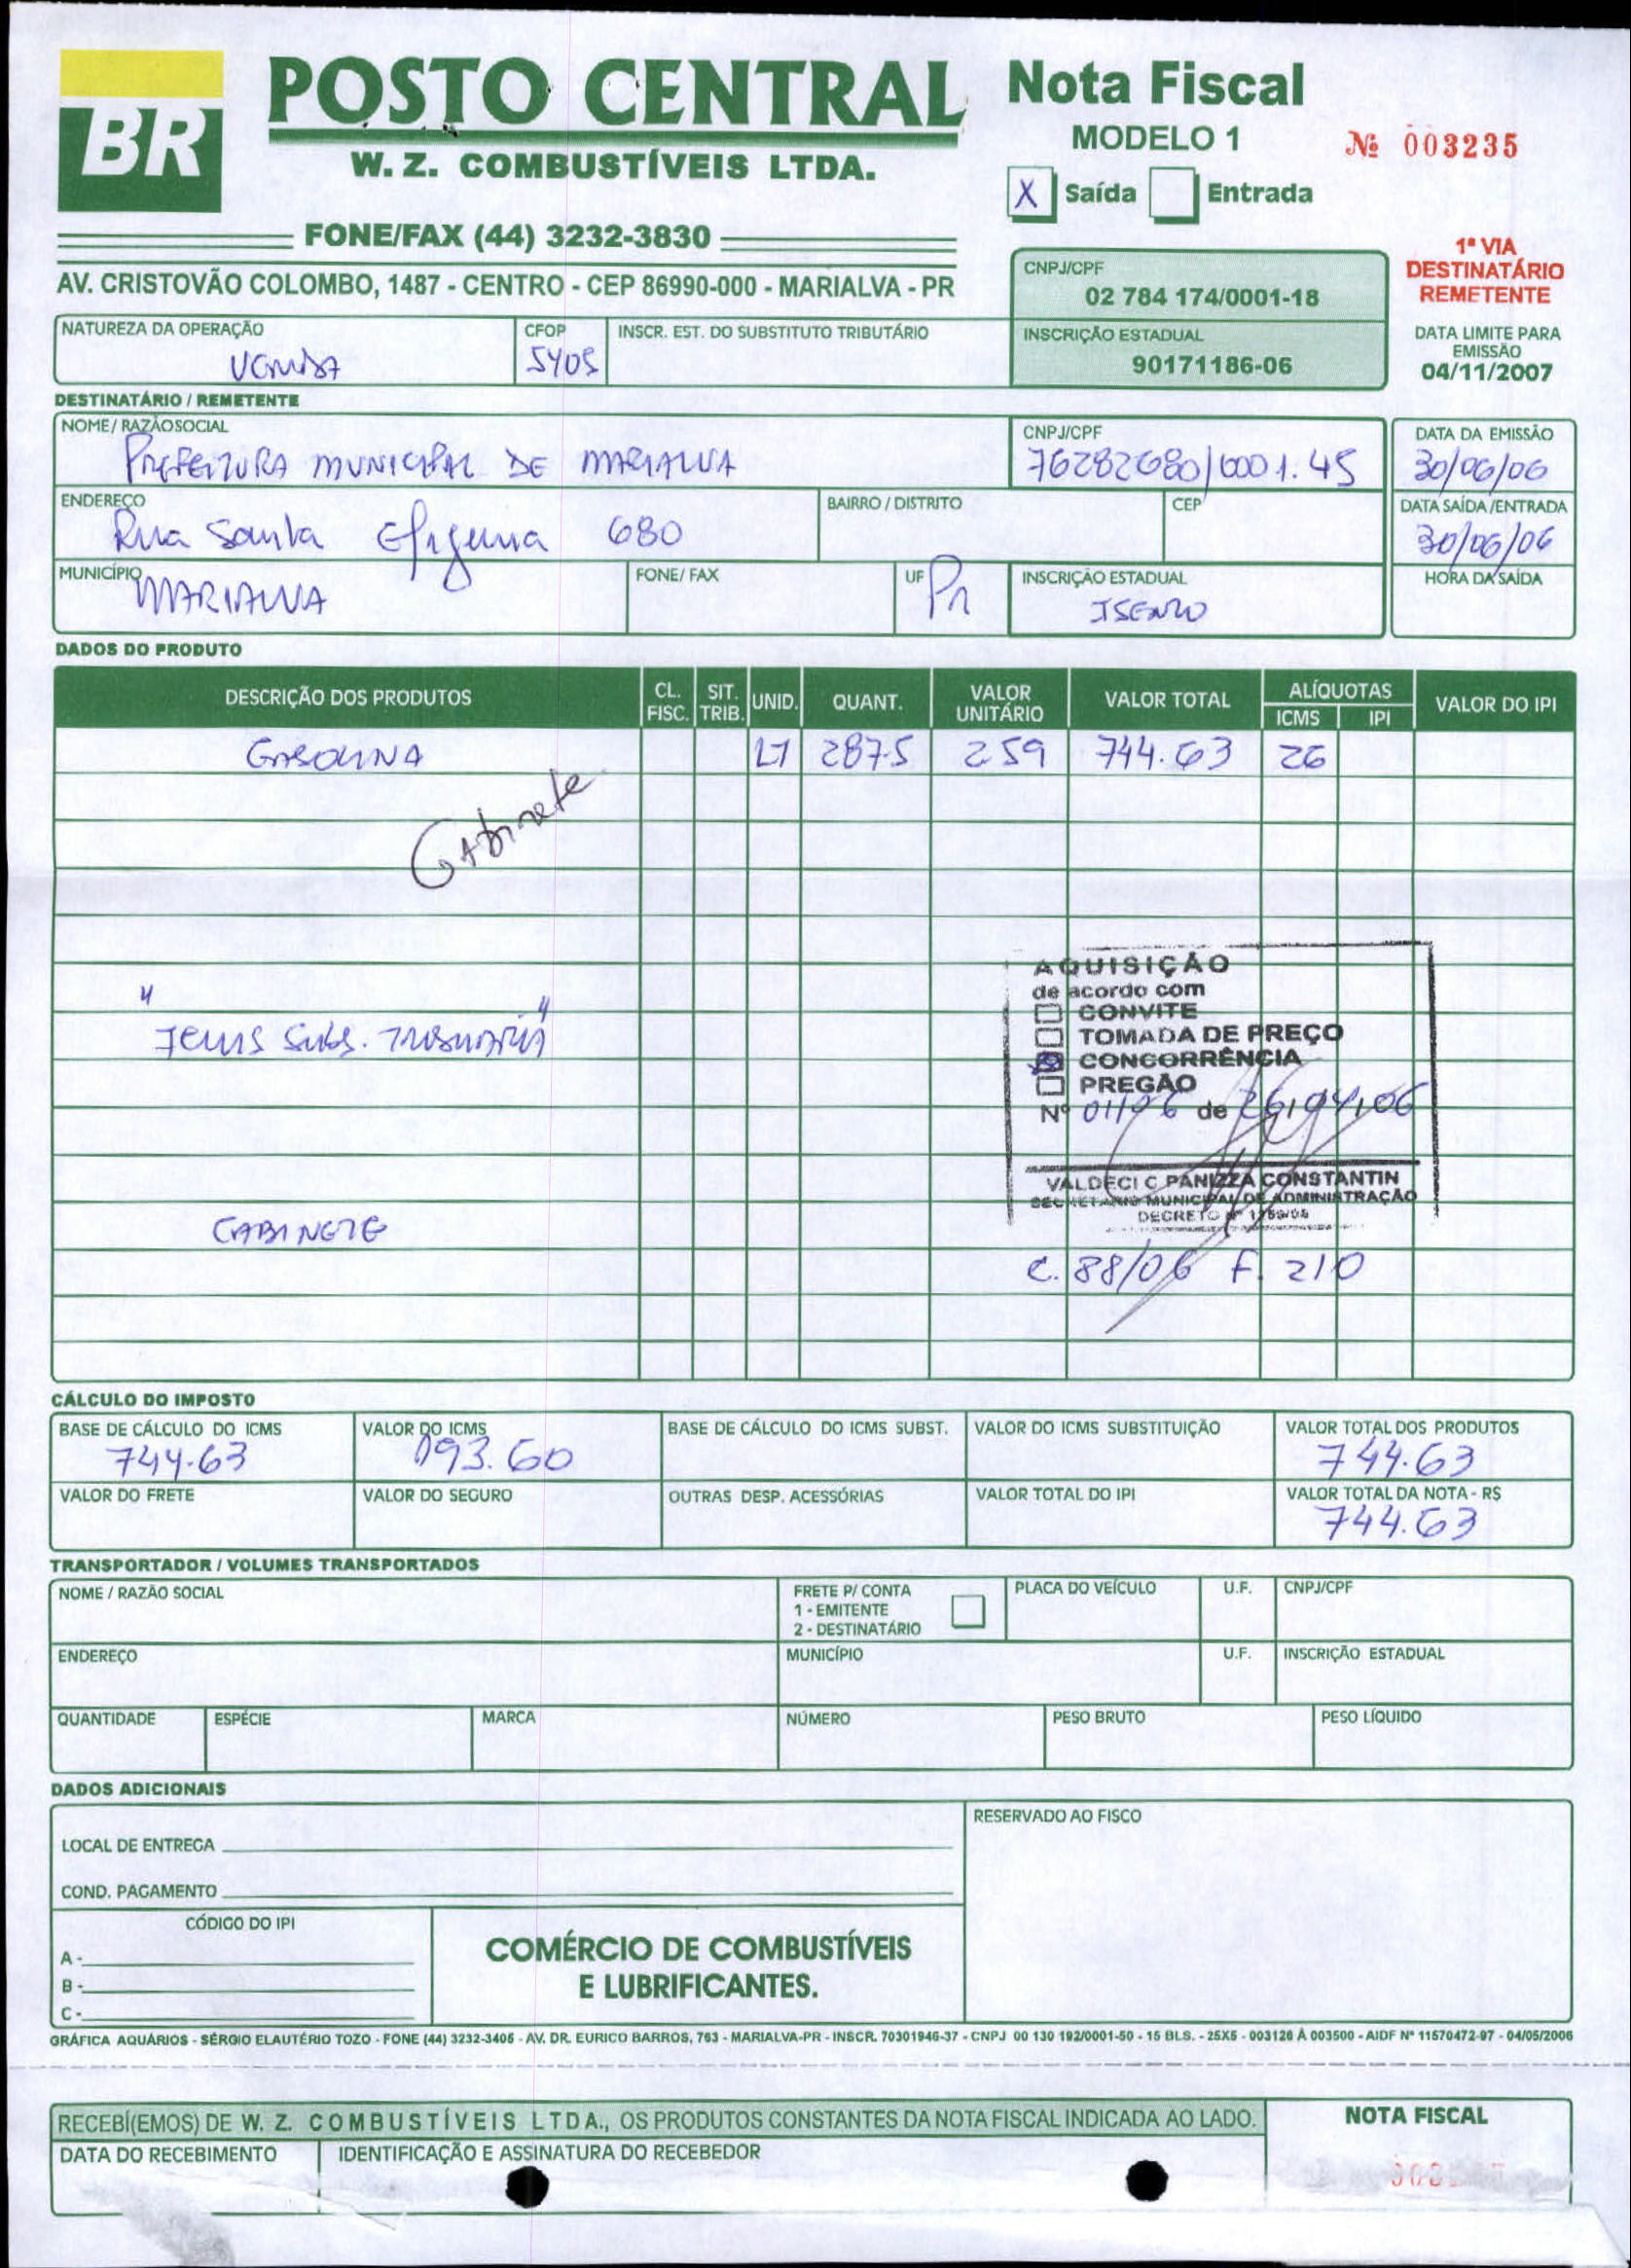 BR
POSTO CENTRAL
W. Z. COMBUSTÍVEIS LTDA.
FONE/FAX (44) 3232-3830
AV. CRISTOVÃO COLOMBO, 1487 - CENTRO - CEP 86990-000 - MARIALVA - PR
Nota Fiscal
MODELO 1
Nº 003235
X Saída Entrada
1ª VIA
DESTINATÁRIO
REMETENTE
CNPJ/CPF
02 784 174/0001-18
INSCRIÇÃO ESTADUAL
90171186-06
DATA LIMITE PARA
EMISSÃO
04/11/2007
NATUREZA DA OPERAÇÃO CFOP INSCR. EST. DO SUBSTITUTO TRIBUTÁRIO
VENDA 5405
DESTINATÁRIO / REMETENTE
NOME / RAZÃO SOCIAL CNPJ/CPF DATA DA EMISSÃO
PREFEITURA MUNICIPAL DE MARIALVA 76282680/0001.45 30/06/06
ENDEREÇO BAIRRO / DISTRITO CEP DATA SAÍDA/ENTRADA
Rua Santa Efigenia 680 30/06/06
MUNICÍPIO FONE/ FAX UF INSCRIÇÃO ESTADUAL HORA DA SAÍDA
MARIALVA Pr ISENTO
DADOS DO PRODUTO
DESCRIÇÃO DOS PRODUTOS CL. FISC. SIT. TRIB. UNID. QUANT. VALOR UNITÁRIO VALOR TOTAL ALÍQUOTAS ICMS IPI VALOR DO IPI
GASOLINA LT 287.5 2.59 744.63 26
Gabinete
AQUISIÇÃO
de acordo com
CONVITE
TOMADA DE PREÇO
CONCORRÊNCIA
PREGÃO
Nº 01/06 de 26/04/06
" ICMS Subs. TRIBUTARIA "
VALDECI C PANIZZA CONSTANTIN
SECRETARIO MUNICIPAL DE ADMINISTRAÇÃO
DECRETO Nº
GABINETE
C. 88/06 F. 210
CÁLCULO DO IMPOSTO
BASE DE CÁLCULO DO ICMS VALOR DO ICMS BASE DE CÁLCULO DO ICMS SUBST. VALOR DO ICMS SUBSTITUIÇÃO VALOR TOTAL DOS PRODUTOS
744.63 193.60 744.63
VALOR DO FRETE VALOR DO SEGURO OUTRAS DESP. ACESSÓRIAS VALOR TOTAL DO IPI VALOR TOTAL DA NOTA - R$
744.63
TRANSPORTADOR / VOLUMES TRANSPORTADOS
NOME / RAZÃO SOCIAL FRETE P/ CONTA PLACA DO VEÍCULO U.F. CNPJ/CPF
1 - EMITENTE
2 - DESTINATÁRIO
ENDEREÇO MUNICÍPIO U.F. INSCRIÇÃO ESTADUAL
QUANTIDADE ESPÉCIE MARCA NÚMERO PESO BRUTO PESO LÍQUIDO
DADOS ADICIONAIS
RESERVADO AO FISCO
LOCAL DE ENTREGA
COND. PAGAMENTO
CÓDIGO DO IPI
A -
B -
C -
COMÉRCIO DE COMBUSTÍVEIS
E LUBRIFICANTES.
GRÁFICA AQUÁRIOS - SÉRGIO ELAUTÉRIO TOZO - FONE (44) 3232-3405 - AV. DR. EURICO BARROS, 763 - MARIALVA-PR - INSCR. 70301946-37 - CNPJ 00 130 192/0001-50 - 15 BLS. - 25X5 - 003126 À 003500 - AIDF Nº 11570472-97 - 04/05/2006
RECEBÍ(EMOS) DE W. Z. COMBUSTÍVEIS LTDA., OS PRODUTOS CONSTANTES DA NOTA FISCAL INDICADA AO LADO.
NOTA FISCAL
DATA DO RECEBIMENTO IDENTIFICAÇÃO E ASSINATURA DO RECEBEDOR